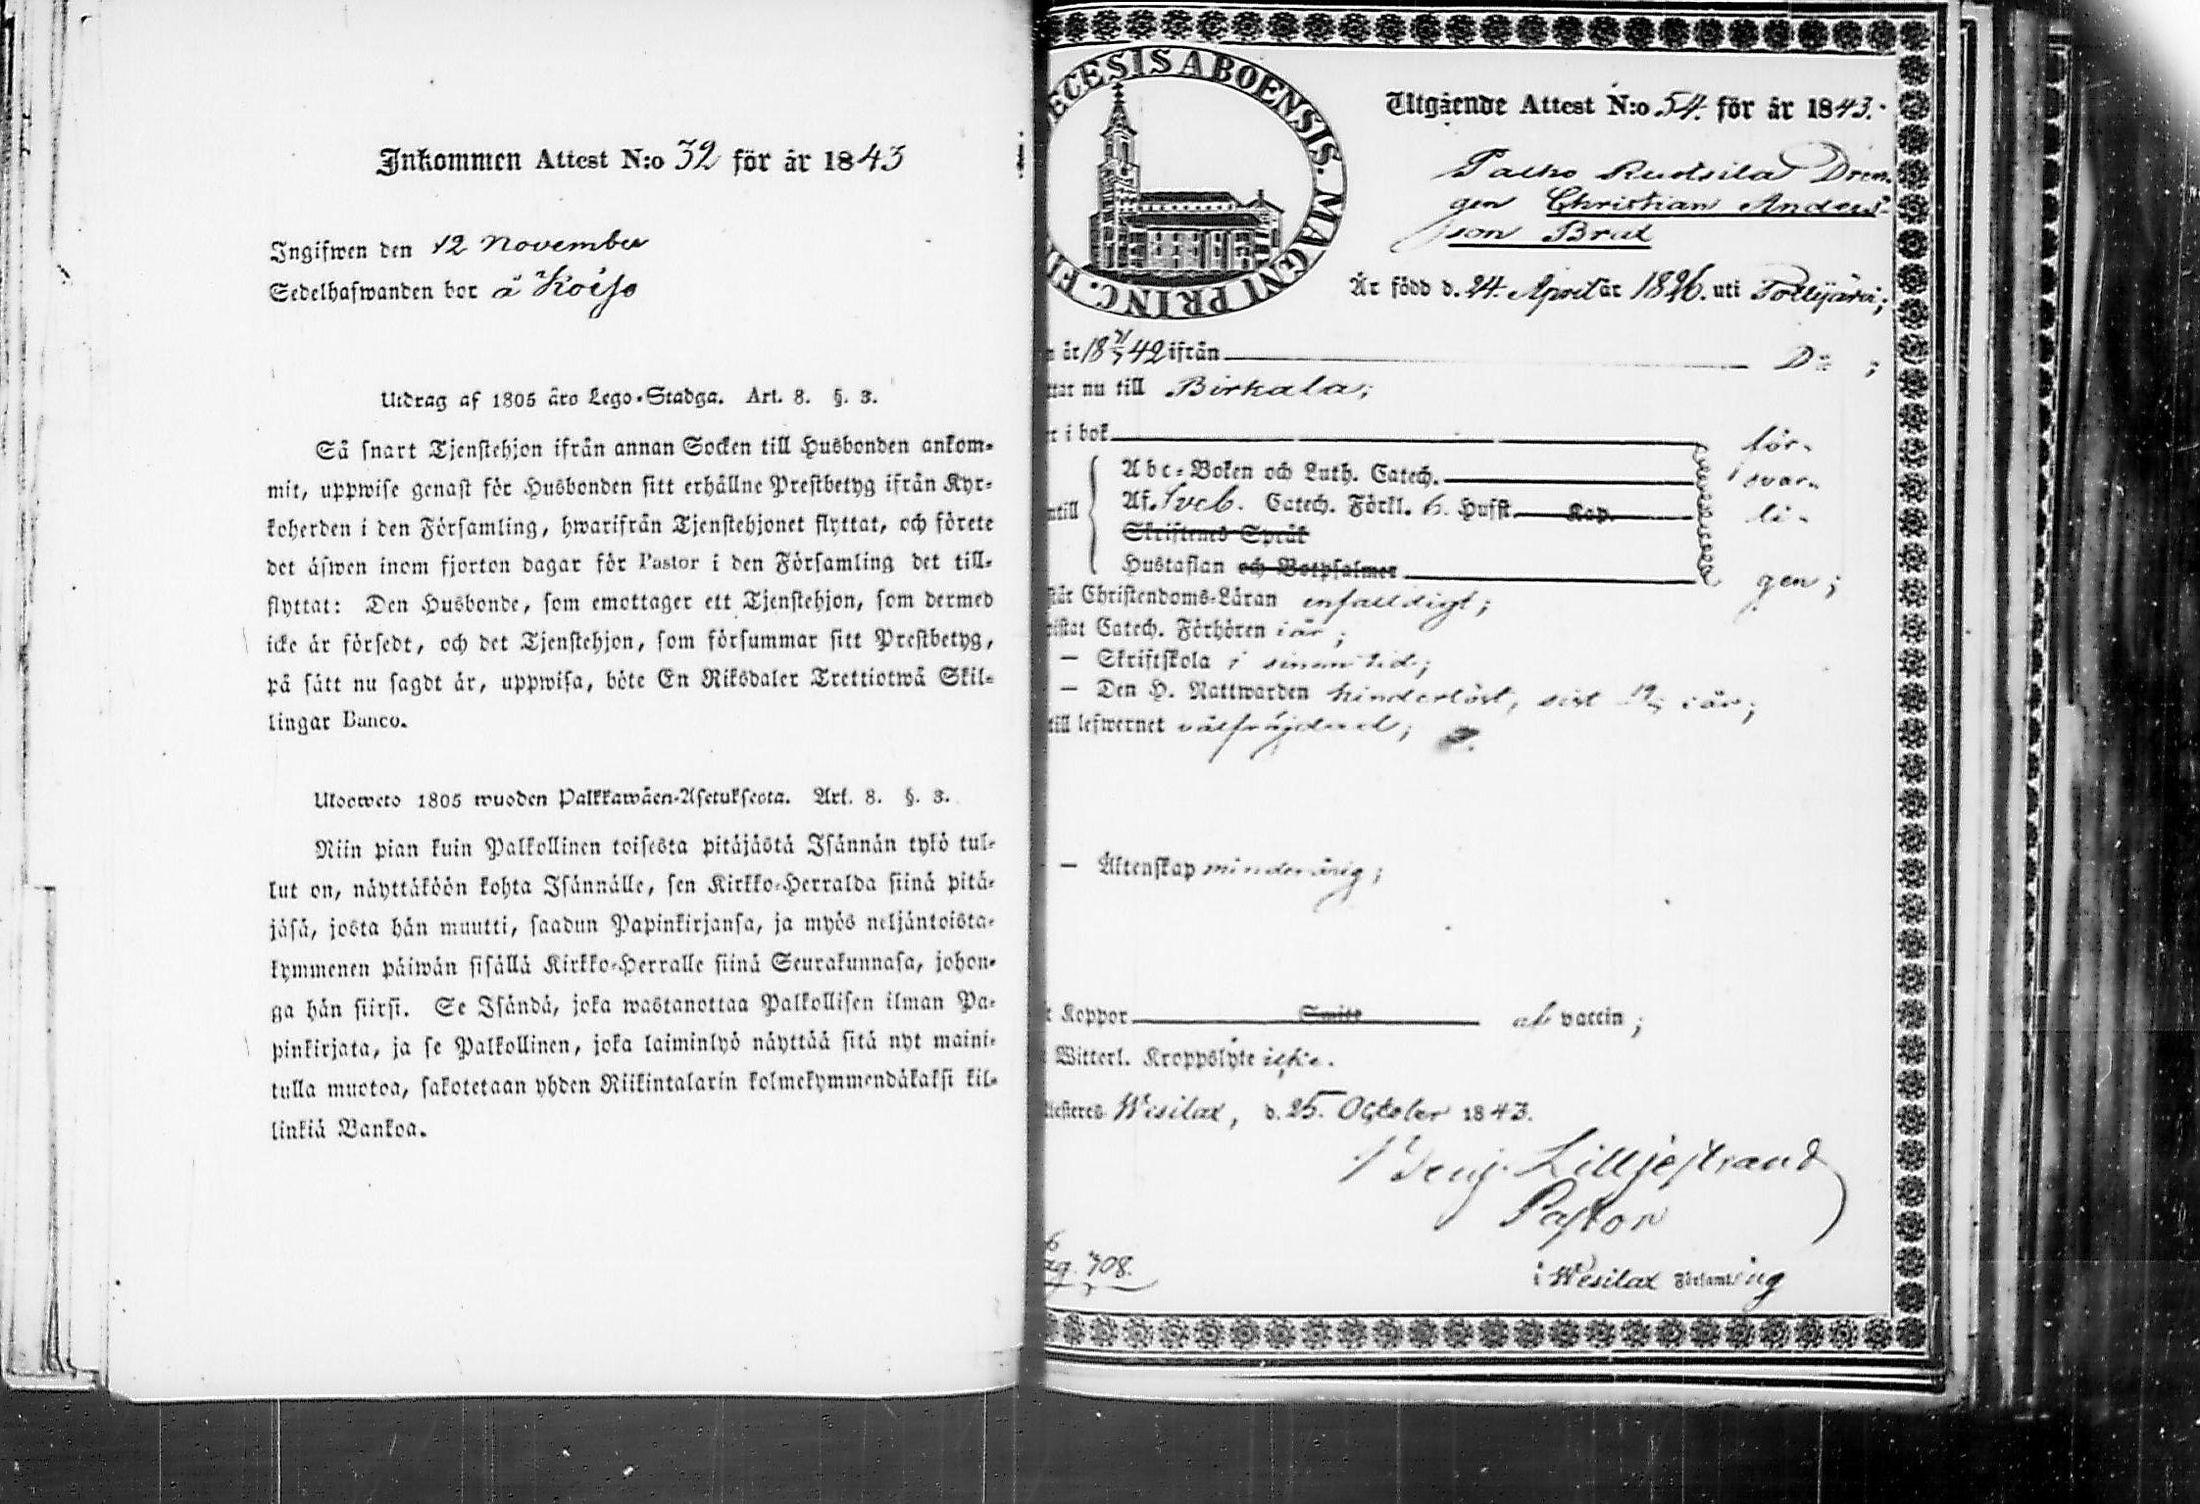 Inkommen Attest N:o 32 för år 1843
Ingifwen den 12 November
Sedelhafwanden bor å Koiso
Utdrag af 1805 års Lego-Stadga. Art. 8. §. 3.
Så snart Tjenstehjon ifrån annan Socken till Husbonden ankom-
mit, uppwise genast för Husbonden sitt erhållne Prestbetyg ifrån Kyr-
koherden i den Församling, hwarifrån Tjenstehjonet flyttat, och förete
det äfwen inom fjorton dagar för Pastor i den Församling det till-
flyttat: Den Husbonde, som emottager ett Tjenstehjon, som dermed
icke är försedt, och det Tjenstehjon, som försummar sitt Prestbetyg,
på sätt nu sagdt är, uppwisa, böte En Riksdaler Trettiotwå Skil-
lingar Banco.
Ulosweto 1805 wuoden Palkkawäen-Asetuksesta. Art. 8. §. 3.
Niin pian kuin Palkollinen toisesta pitäjästä Isännän tykö tul-
lut on, näyttäköön kohta Isännälle, sen Kirkko-Herralda siinä pitä-
jäsä, josta hän muutti, saadun Papinkirjansa, ja myös neljäntoista-
kymmenen päiwän sisällä Kirkko-Herralle siinä Seurakunnasa, johon-
ga hän siirsi. Se Isändä, joka wastanottaa Palkollisen ilman Pa-
pinkirjata, ja se Palkollinen, joka laiminlyö näyttää sitä nyt maini-
tulla muotoa, sakotetaan yhden Riikintalarin kolmekymmendäkaksi kil-
linkiä Bankoa.
ECESIS ABOENSIS. MAGNI PRINC. FI
Utgående Attest N:o 54. för år 1843.
Palho Rudsila Drän-
gen Christian Anders-
son Brat
Är född d. 24. April år 1826. uti Tottijärvi;
år 18 42 ifrån D:o ;
nu till Birkala;
i bok för-
Abc-Boken och Luth. Catech. svar-
till Af. Sveb. Catech. Förkl. 6. Husst. Kap. li-
Skriftenes Språk
Hustaflan och Botpsalmer gen ;
Christendoms-Läran enfaldigt ;
Catech. Förhören i år ;
— Skriftskola i sinom tid ;
— Den H. Nattwarden hinderlöst, sist i år ;
till lefwernet välfrejdad ;
— Äktenskap minderårig ;
Koppor Smitt af vaccin ;
Witterl. Kroppslyte icke.
Wesilax, d. 25. October 1843.
Benj. Lilljestrand
Pastor
i Wesilax Församling
708.